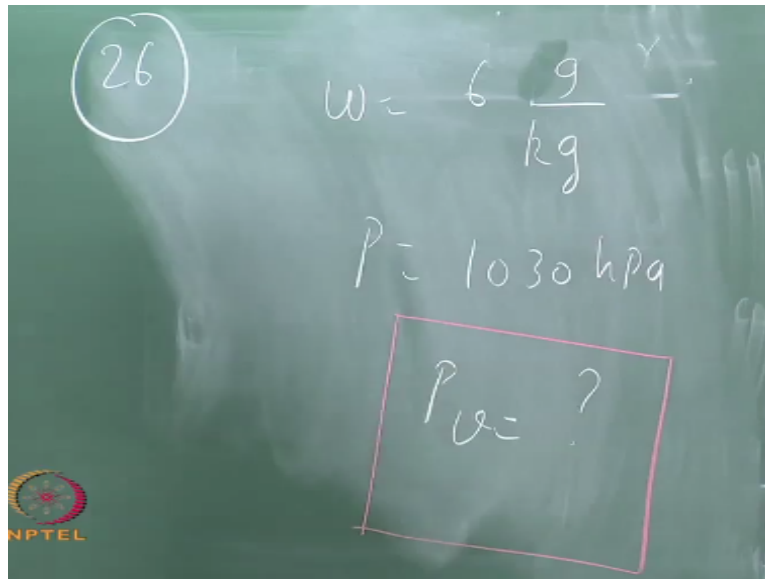 26
w = 6 g
kg
P = 1030 hPa
Pv = ?
NPTEL